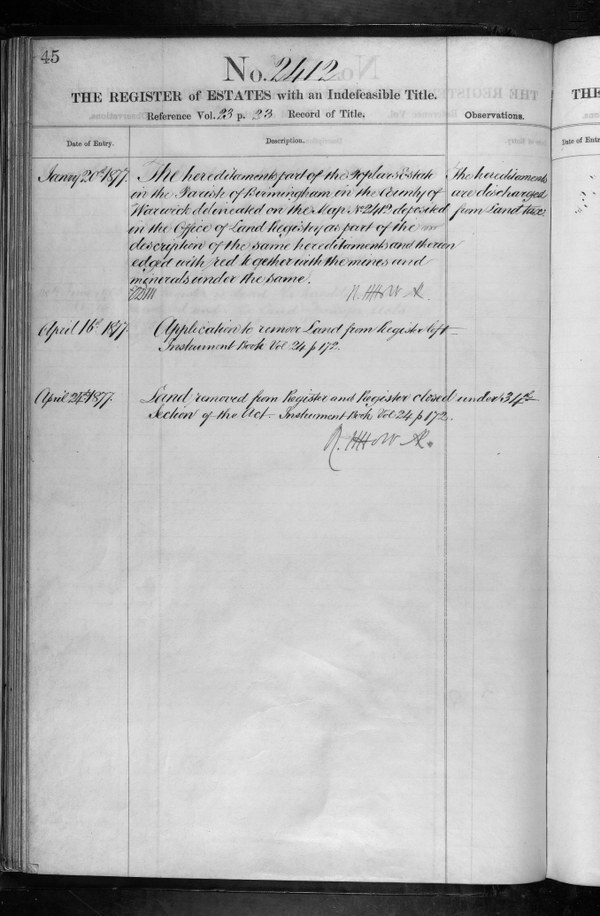 45
No. 2412
THE REGISTER of ESTATES with an Indefeasible Title.
Reference Vol. 23 p. 23 Record of Title,
Observations.
Date of Entry.
Description.
Janry 20th 1877.
The hereditaments part of the Poplars Estate
in the Parish of Birmingham in the County of
Warwick delineated on the Map No 2412 deposited
in the Office of Land Registry as part of the
description of the same hereditaments and therein
edged with red together with the mines and
minerals under the same.
The hereditaments
are discharged
from Land tax.
R. H. H. W. AR.
April 16th 1877.
Application to remove Land from Register left
Instrument Book Vol 24 p 172.
April 24th 1877.
Land removed from Register and Register closed under 34th
Section of the Act. Instrument Book Vol 24 p 172.
R. H. H. W. AR.
THE
Date of Entry